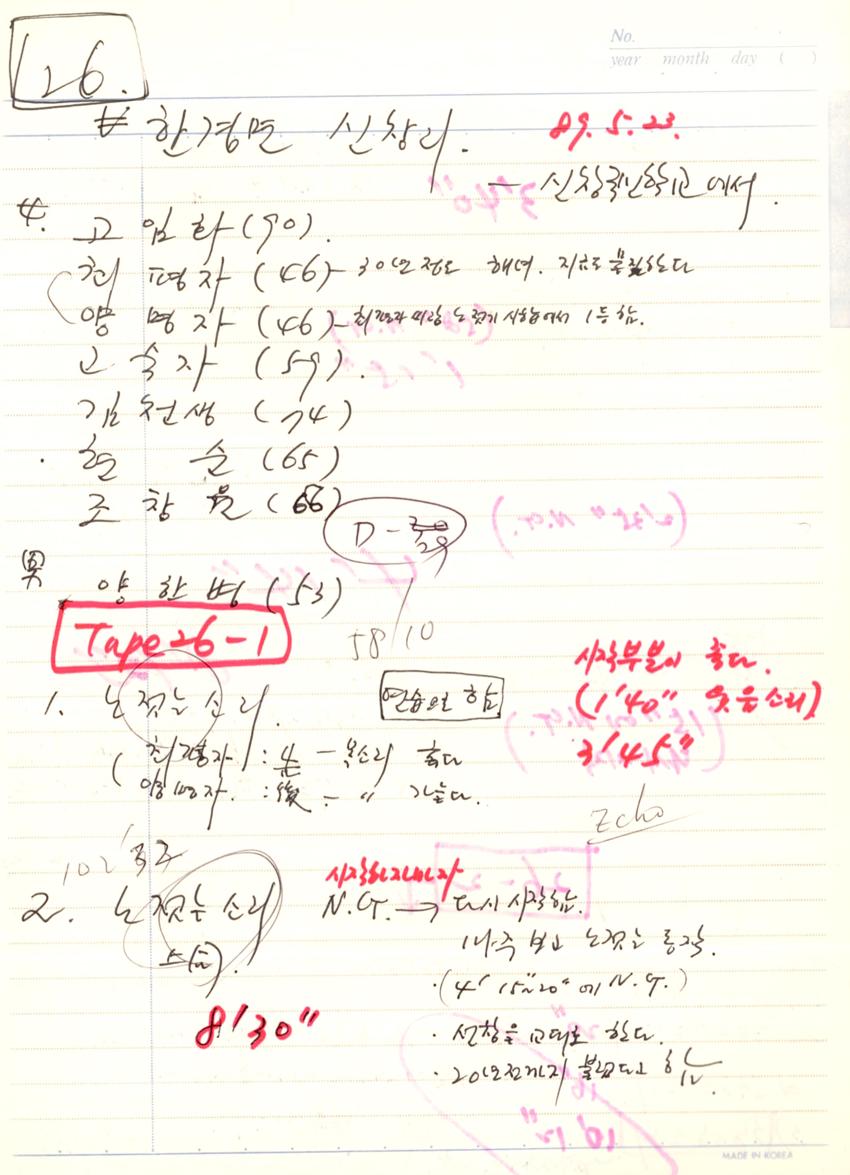 No.
year month day ( )
26.
# 한경면 신창리.
89. 5. 23.
— 신창국민학교에서.
女.
고 임 화 (90).
현 평 자 (46) - 30년 정도 해녀. 지금도 물질한다
양 명 자 (46) - 노 젓기 시합에서 1등 함.
고 숙 자 (59).
김 천 생 (74)
현 순 (65)
조 창 (66)
D - 29
(男)
양 한 (53)
58/10
Tape 26-1
시작부분이 좋다.
(1'40" 웃음소리)
3'45"
1. 노 젓는 소리.
연습으로 함
: 先 - 목소리 좋다
양명자. : 後 - " 가늘다.
Echo
102
2. 노 젓는 소리
시작하자마자
N.G. → 다시 시작함.
마주 보고 노 젓는 동작.
·(4' 15"~20"에 N.G.)
8'30"
· 선창을 교대로 한다.
· 20년전까지 불렀다고 함
MADE IN KOREA